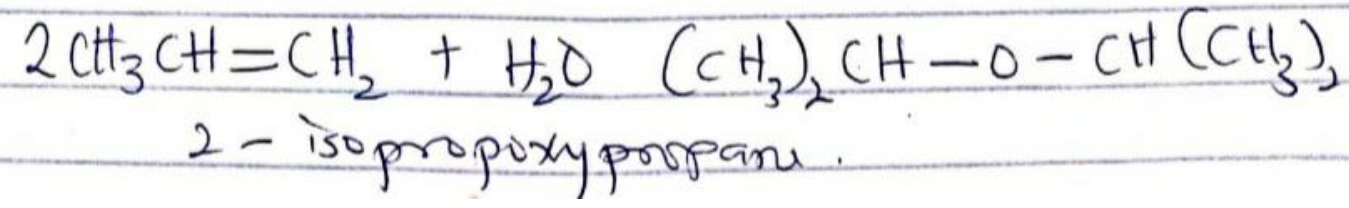 2CH₃CH=CH₂ + H₂O (CH₃)₂CH-O-CH(CH₃)₂
2-isopropoxypropane.